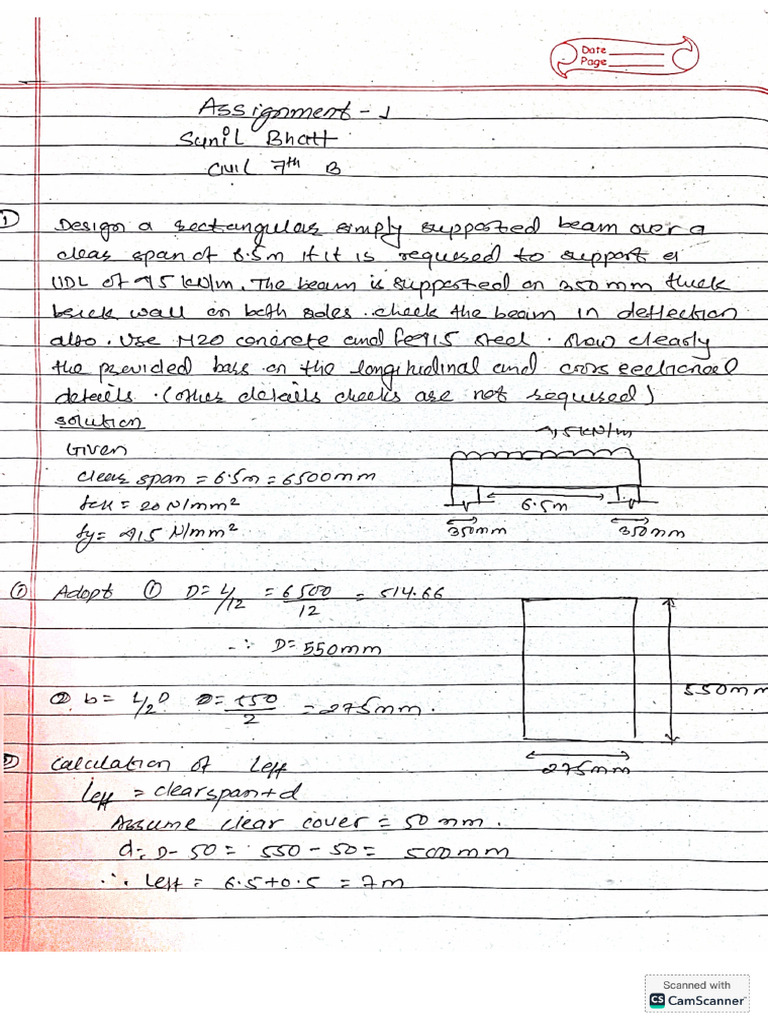 Date
Page
Assignment - 1
Sunil Bhatt
Civil 7th B
① Design a rectangular simply supported beam over a
clear span of 6.5m if it is required to support a
UDL of 45 kN/m. The beam is supported on 350 mm thick
brick wall on both sides. check the beam in deflection
also. Use M20 concrete and fe415 steel. show clearly
the provided bars on the longitudinal and cross sectional
details. (other details checks are not required)
solution
Given
45 kN/m
clear span = 6.5m = 6500mm
fck = 20 N/mm²
6.5m
fy = 415 N/mm²
350mm 350mm
① Adopt ① D = L/12 = 6500/12 = 514.66
∴ D = 550mm
550mm
② b = 1/2 D = 550/2 = 275mm.
275mm
② Calculation of leff
leff = clear span + d
Assume clear cover = 50 mm.
d = D - 50 = 550 - 50 = 500mm
∴ leff = 6.5+0.5 = 7m
Scanned with
CS CamScanner